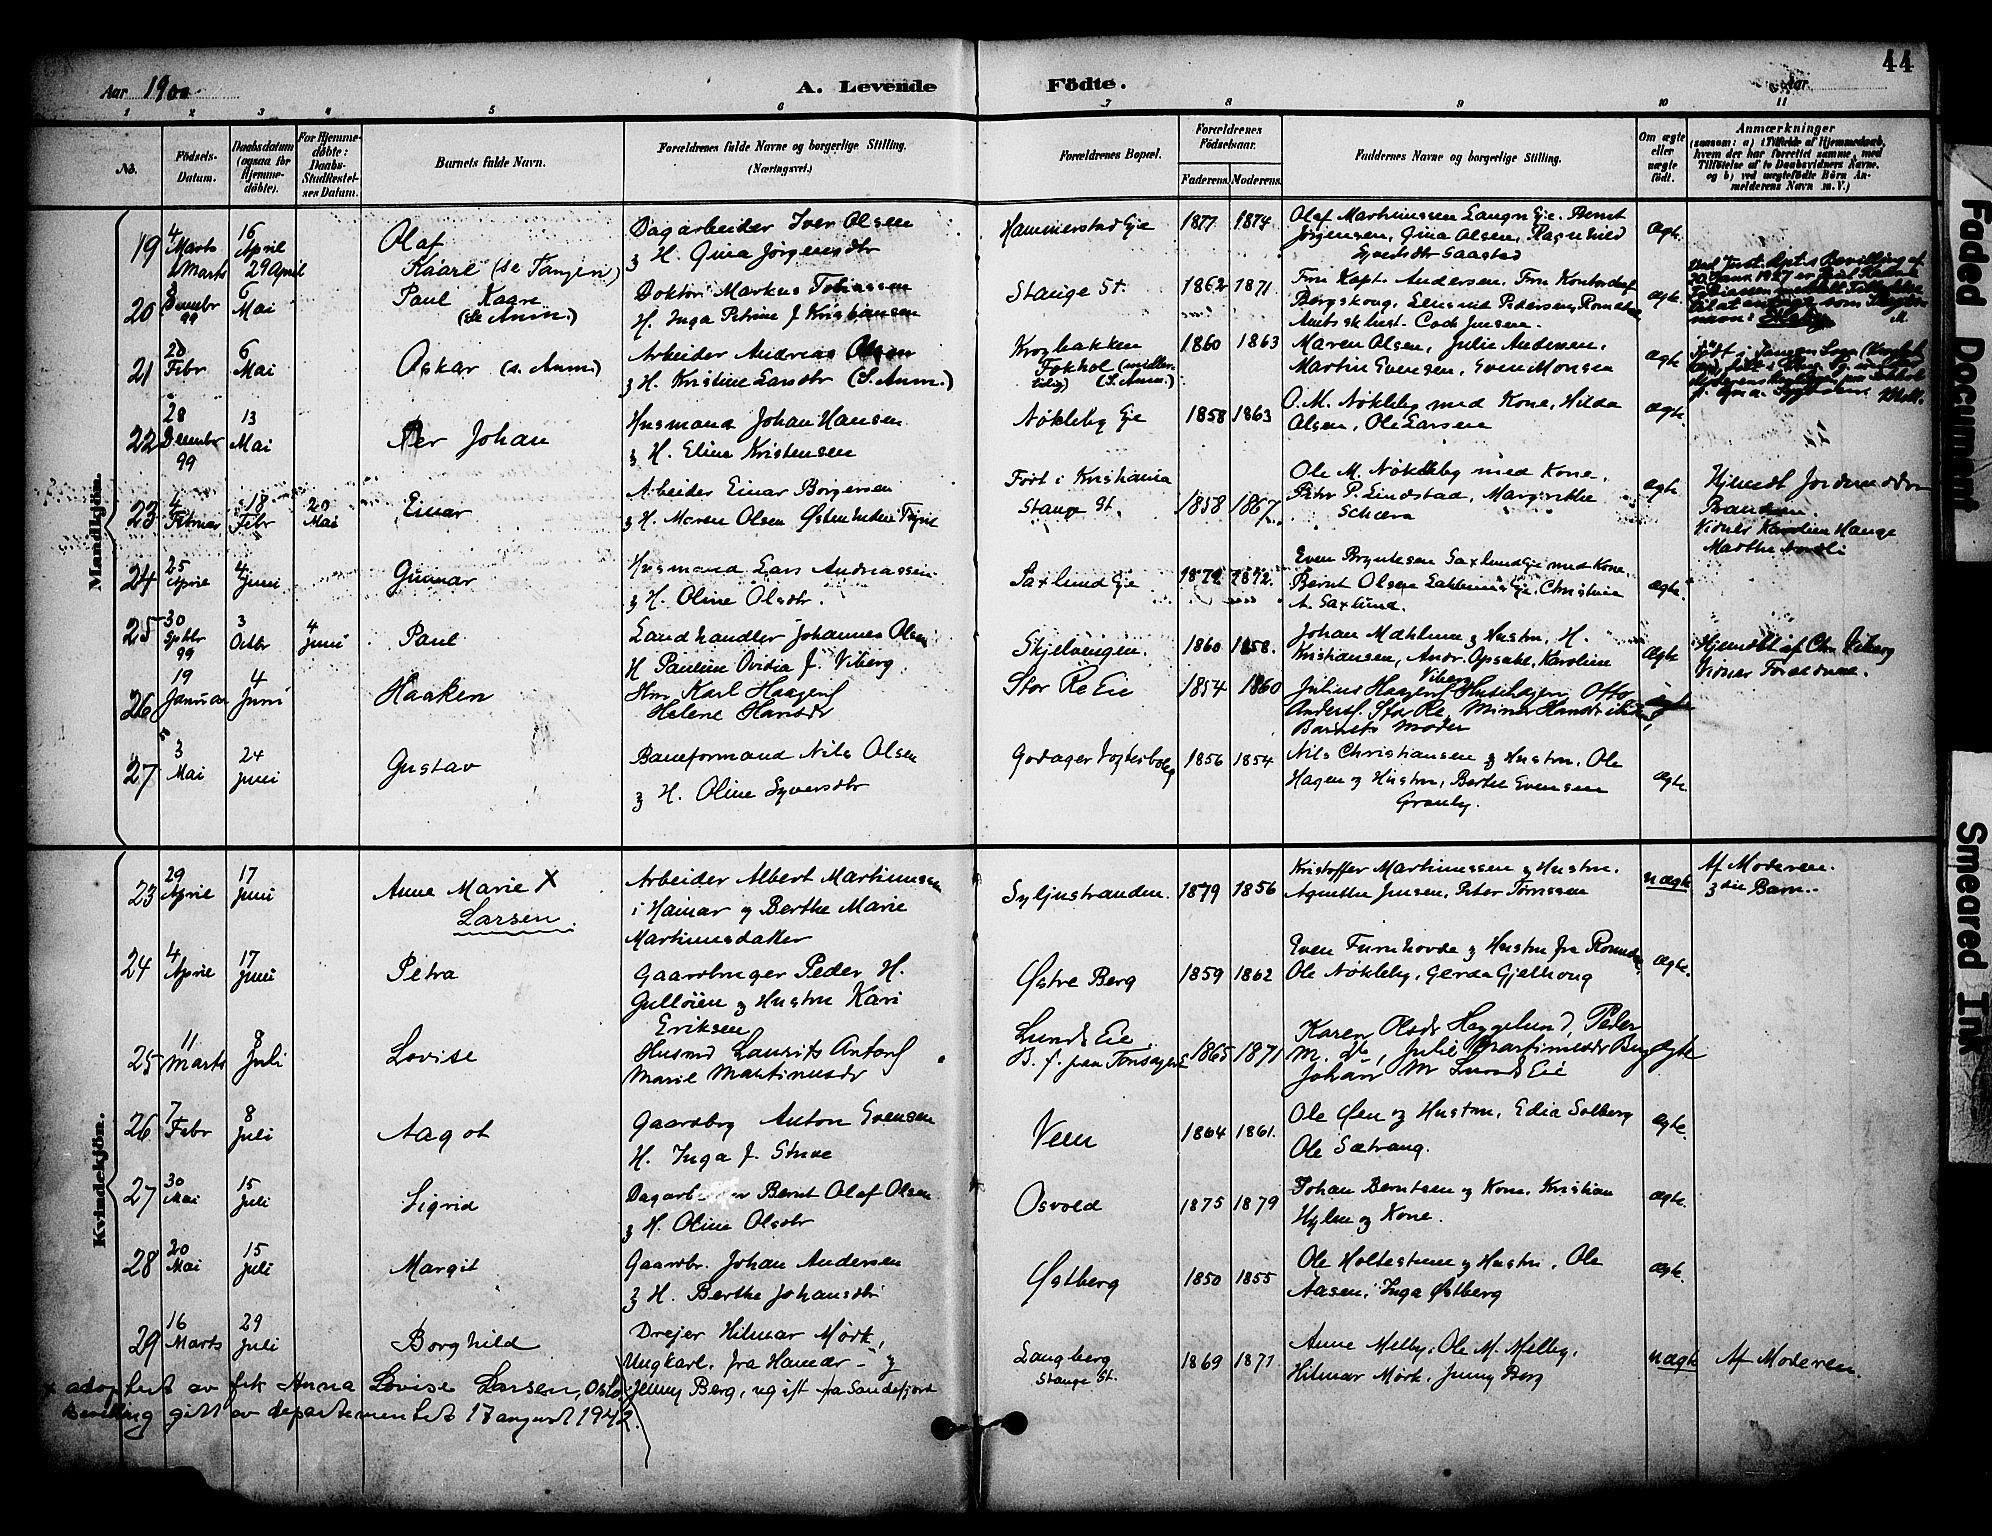 44
Aar 1900
A. Levende Födte.
Aar
1 2 3 4 5 6 7 8 9 10 11
No.
Födsels-Datum.
Daabsdatum (ogsaa for Hjemmedöbte).
For Hjemmedöbte: Daabs-Stadfæstelses Datum.
Barnets fulde Navn.
Forældrenes fulde Navne og borgerlige Stilling. (Næringsvei.)
Forældrenes Bopæl.
Forældrenes Födselsaar.
Faderens. Moderens.
Faddernes Navne og borgerlige Stilling.
Om ægte eller uægte födt.
Anmærkninger
(saasom: a) i Tilfælde af Hjemmedaab, hvem der har forrettet samme, med Tilföielse af to Daabsvidners Navne, og b) ved uægtefödte Börn Anmelderens Navn m. V.)
Mandkjön.
19 4 Marts 16 April Olaf
Dagarbeider Iver Olsen
& H. Gina Jörgensdtr
Hammerstad Eje 1877 1874
Olaf Martinussen Langn Eje. Bernt
Jörgensen, Gina Olsen, Ragnhild
Syversdtr Saastad
Ægte.
Marts 29 April Kaarl (se Tangen)
20 Decembr 99 6 Mai Paul Kaare
(se Anm.)
Doktor Markus Tobiassen
H. Inga Petrine f. Kristiansen
Stange St. 1862 1871
Fru Kapt. Andersen. Fru
Bergskoug. Pedersen, Romedal
Jensen.
Ægte.
21 20 Febr 6 Mai Oskar (s. Anm.)
Arbeider Andreas Olsen
& H. Kristine Larsdtr (S. Anm.)
Krogbakken
Fokhol
(S. Anm.)
1860 1863
Maren Olsen, Julie Andersen,
Martin Evensen, Even Monsen
Ægte
22 28 Decembr 99 13 Mai Per Johan
Husmand Johan Hansen
& H. Eline Kristensen
Nökleby Eje 1858 1863
O. M. Nökleby med Kone, Hilda
Olsen, Ole Larsen
Ægte.
23 4 Februar 18 Febr 20 Mai Einar
Arbeider Einar Borgersen
& H. Maren Olsen
Födt i Kristiania
Stange St. 1858 1867
Ole M. Nökleby med Kone.
Peter P. Lindstad, Margrethe
Ægte
Hjemdt Jordemoder
Vidner Karoline Hauge
Marthe
24 25 April 4 Juni Gunnar
Husmand Lars Andreassen
& H. Oline Olsdtr.
Saxlund Eje 1872 1872.
Even Saxlund Eje med Kone
Bernt Olsen Eje. Christine
A. Saxlund.
Ægte.
25 30 Sptbr 99 3 Octbr 4 Juni Paul
Landhandler Johannes Olsen
H Pauline Ovidia f. Viberg.
Skjelvengen. 1860 1858.
Johan Mæhlum & Hustru, H.
Kristiansen, Andr. Opsahl, Karoline
Viberg
Ægte
Hjemdöbt af Chr. Viberg
Vidner Forældrene.
26 19 Januar 4 Juni Haaken
Hm Karl Haagens
Helene Hansdr
Stor Re Eie 1854 1860
Julius Haagens Husehagen, Otto
Anders. Stor Re,
Barnets Moder
Ægte
27 3 Mai 24 Juni Gustav
Baneformand Nils Olsen
& H. Oline Syversdtr
Godager Vogterbolig 1856 1854
Nils Christiansen & Hustru, Ole
Hagen & Hustru, Berthe Evensen
Granby.
Ægte.
Kvindekjön.
23 29 April 17 Juni Anne Marie X
Larsen.
Arbeider Albert Martinussen
i Hamar & Berthe Marie
Martinusdatter
Syljustranden. 1879 1856
Kristoffer Martinussen & Hustru.
Agnethe Jensen, Peter Tonssen
uægte
Af Moderen.
3die Barn.
24 4 April 17 Juni Petra
Gaardbruger Peder H.
Gullöien & Hustru Kari
Eriksen
Østre Berg 1859 1862
Even Furuhovde & Hustru fra Romedal,
Ole Nökleby, Gerda Gjethoug
Ægte.
25 11 Marts 8 Juli Lovise
Husmd Laurits Antons
Marie Martinusdr
Lunds Eie.
B. f. paa 1865 1871
Karen Olsdr Heggelund, Peder
M. Do, Julie Martinusdr Berg
Johan M Lunds Eie
Ægte
26 7 Febr 8 Juli Aagot
Gaardbrg Anton Evensen
H. Inga f. Struve
Veen 1864 1861.
Ole Øen & Hustru, Edia Solberg
Ole Sætrang.
Ægte.
27 30 Mai 15 Juli Sigrid
Dagarbeider Bernt Olaf Olsen
& H. Oline Olsdtr
Osvold 1875 1879
Johan Berntsen & Kone. Kristian
Hylen & Kone.
Ægte.
28 20 Mai 15 Juli Margit
Gaardbr. Johan Andersen
& H. Berthe Johansdtr
Østberg 1850 1855
Ole Holtestuen & Hustru, Ole
Aasen, Inga Østberg
Ægte.
29 16 Marts 29 Juli Borghild
Drejer Hilmar Mörk,
Ungkarl. fra Hamar – &
Jenny Berg, ugift fra Sandefjord
Langberg
Stange St. 1869 1871
Anne Melby, Ole M. Melby,
Hilmar Mörk, Jenny Berg
uægte
Af Moderen.
X adoptert av frk Anna Lovise Larsen, Oslo,
Bevilling gitt av departementet 17 august 1942.
Faded Document
Smeared Ink